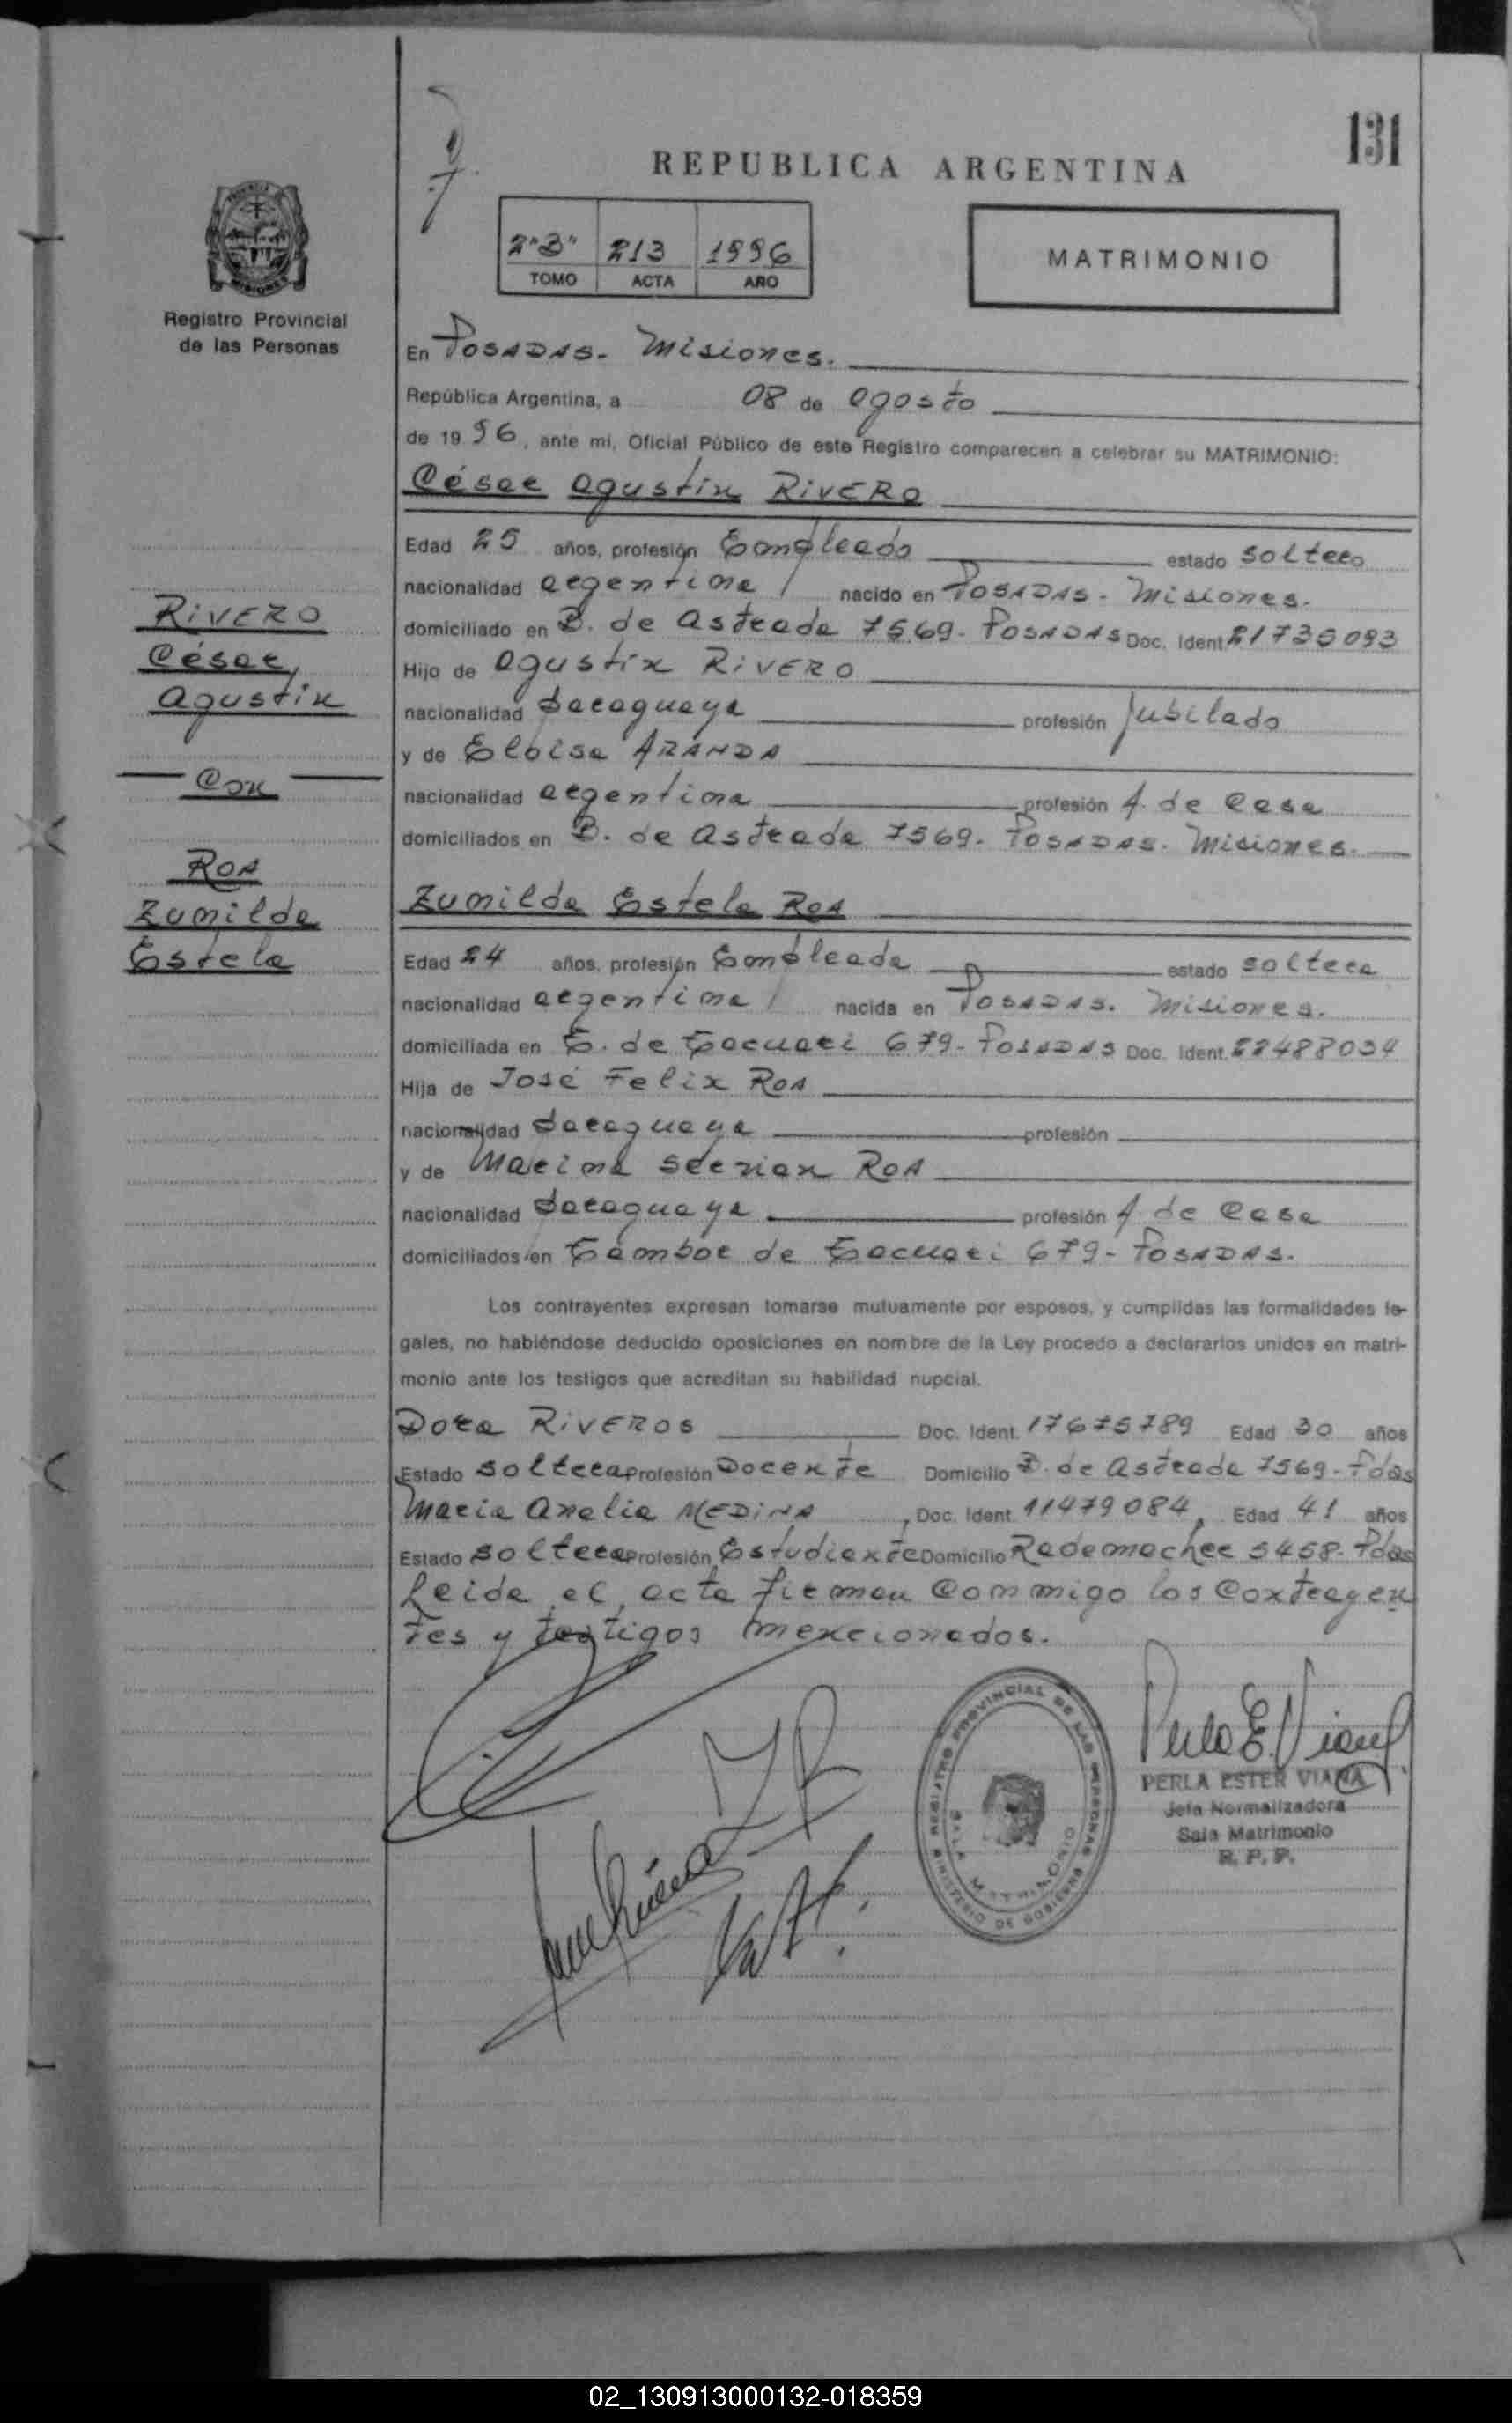 131
REPUBLICA ARGENTINA
2"B" 213 1996
TOMO ACTA AÑO
MATRIMONIO
Registro Provincial
de las Personas
En POSADAS - Misiones.
República Argentina, a 08 de agosto
de 1996, ante mi, Oficial Público de este Registro comparecen a celebrar su MATRIMONIO:
César Agustín RIVERO
Edad 25 años, profesión Empleado estado soltero
nacionalidad argentina nacido en POSADAS - Misiones.
domiciliado en B. de Astrada 7569 - POSADAS Doc. Ident. 21735093
Hijo de Agustín RIVERO
nacionalidad paraguaya profesión Jubilado
y de Eloisa ARANDA
nacionalidad argentina profesión A. de Casa
domiciliados en B. de Astrada 7569 - POSADAS. Misiones.
RIVERO
César
Agustín
Con
ROA
Zunilda
Estela
Zunilda Estela ROA
Edad 24 años, profesión Empleada estado soltera
nacionalidad argentina nacida en POSADAS. Misiones.
domiciliada en T. de Tacuari 679 - POSADAS Doc. Ident. 22488034
Hija de José Felix ROA
nacionalidad paraguaya profesión
y de Marina ROA
nacionalidad paraguaya profesión A. de Casa
domiciliados en Tambor de Tacuari 679 - POSADAS.
Los contrayentes expresan tomarse mutuamente por esposos, y cumplidas las formalidades le-
gales, no habiéndose deducido oposiciones en nombre de la Ley procedo a declararlos unidos en matri-
monio ante los testigos que acreditan su habilidad nupcial.
Dora RIVEROS Doc. Ident. 17675789 Edad 30 años
Estado soltera Profesión Docente Domicilio B. de Astrada 7569 - Pdas
Maria Anelia MEDINA, Doc. Ident. 11479084, Edad 41 años
Estado soltera Profesión Estudiante Domicilio Rademacher 5458 - Pdas
Leida el acta firman conmigo los contrayen
tes y testigos mencionados.
REGISTRO PROVINCIAL DE LAS PERSONAS
MINISTERIO DE GOBIERNO
SALA MATRIMONIO
Perla E. Viana
PERLA ESTER VIANA
Jefa Normalizadora
Sala Matrimonio
R. P. P.
02_130913000132-018359